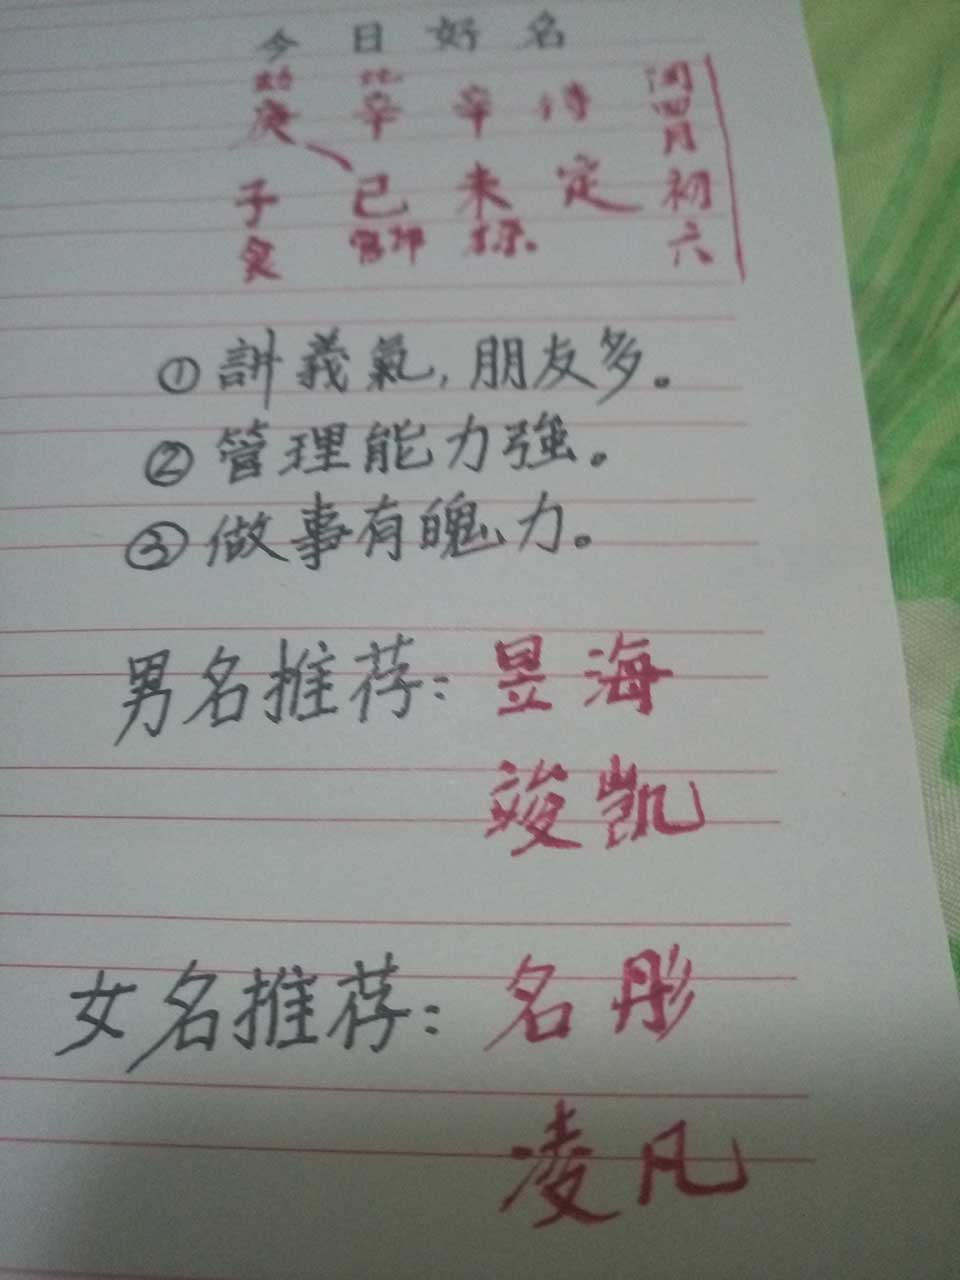 今日好名
劫 比
庚 辛 辛 待
子 巳 未 定
食 官印
闰四月初六
①讲義氣,朋友多。
②管理能力強。
③做事有魄力。
男名推荐:昱海
竣凯
女名推荐:名彤
凌凡